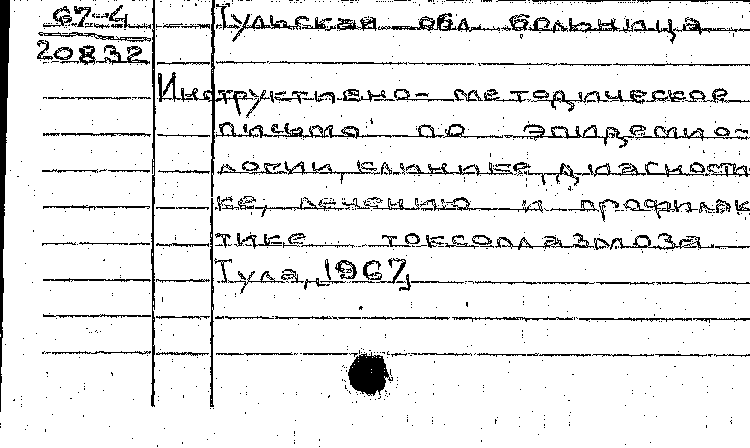 67-4 Тульская обл. больница
20832
Инструктивно-методическое
письмо по эпидемио-
логии, клинике, диагности
ке, лечению и профилак
тике токсоплазмоза.
Тула, [1967]